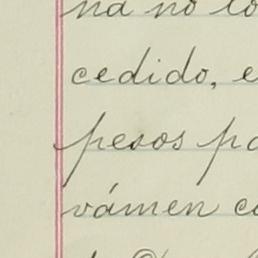 na no co
cedido, e
pesos pa
vámen co